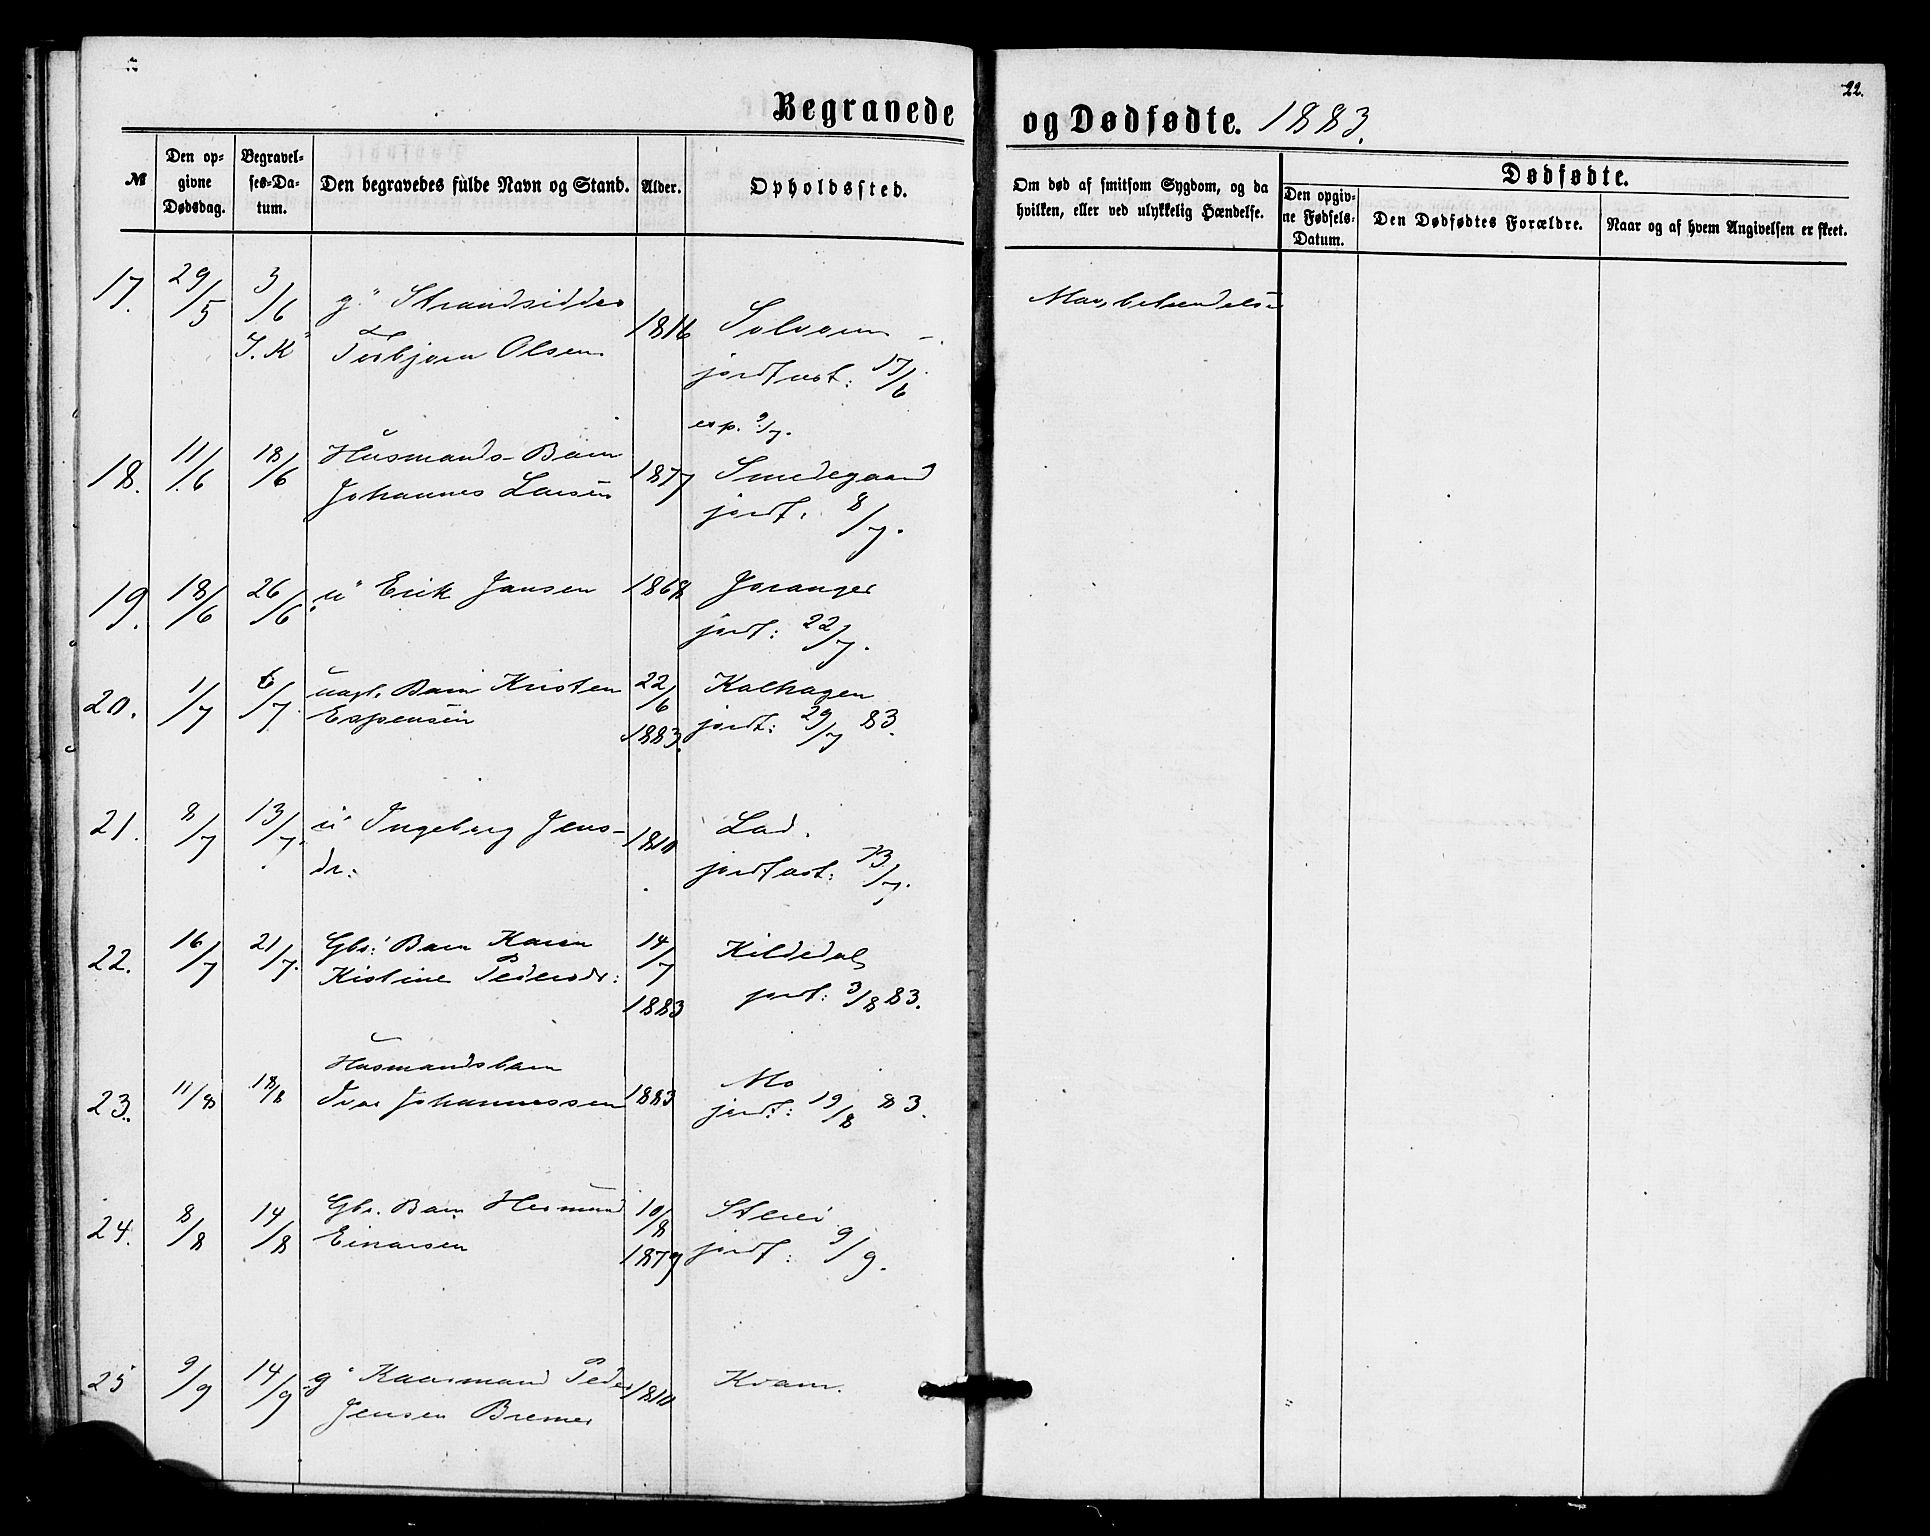 Begravede
og Dødfødte. 1883.
22.
№
Den op-
givne
Dødsdag.
Begravel-
ses-Da-
tum.
Den begravedes fulde Navn og Stand.
Alder.
Opholdssted.
Om død af smitsom Sygdom, og da
hvilken, eller ved ulykkelig Hændelse.
Dødfødte.
Den opgiv-
ne Fødsels-
Datum.
Den Dødfødtes Forældre.
Naar og af hvem Angivelsen er skeet.
17. 29/5 3/6 g. Strandsidder
J. K Torbjørn Olsen 1816 Solvorn
jordfast: 17/6
esp. 9/7.
18. 11/6 18/6 Husmands-Barn
Johannes Larsen 1877 Smedegaard
jordf. 8/7.
19. 18/6 26/6 u Erik Jansen 1868 Joranger
jordf: 22/7.
20. 1/7 6/7 uægt. Barn Kristen 22/6 Kalhagen
Espensen 1883. jordf: 29/7 83.
21. 8/7 13/7 u Ingeborg Jens-
dr: 1810 Lad.
jordfast: 13/7.
22. 16/7 21/7. Gbr: Barn Karen 14/7 Kildedal
Kistine Pedersdr: 1883 jordf: 3/8 83.
23. 11/8 18/8 Husmandsbarn
Ivar Johannessen 1883 Mo
jordf: 19/8 83.
24. 8/8 14/8 Gbr. Barn Hermund 10/8
Einarsen 1879 jordf: 9/9.
25 9/9 14/9 g Kaarmand Peder 1810 Kvam.
Jensen Bremer